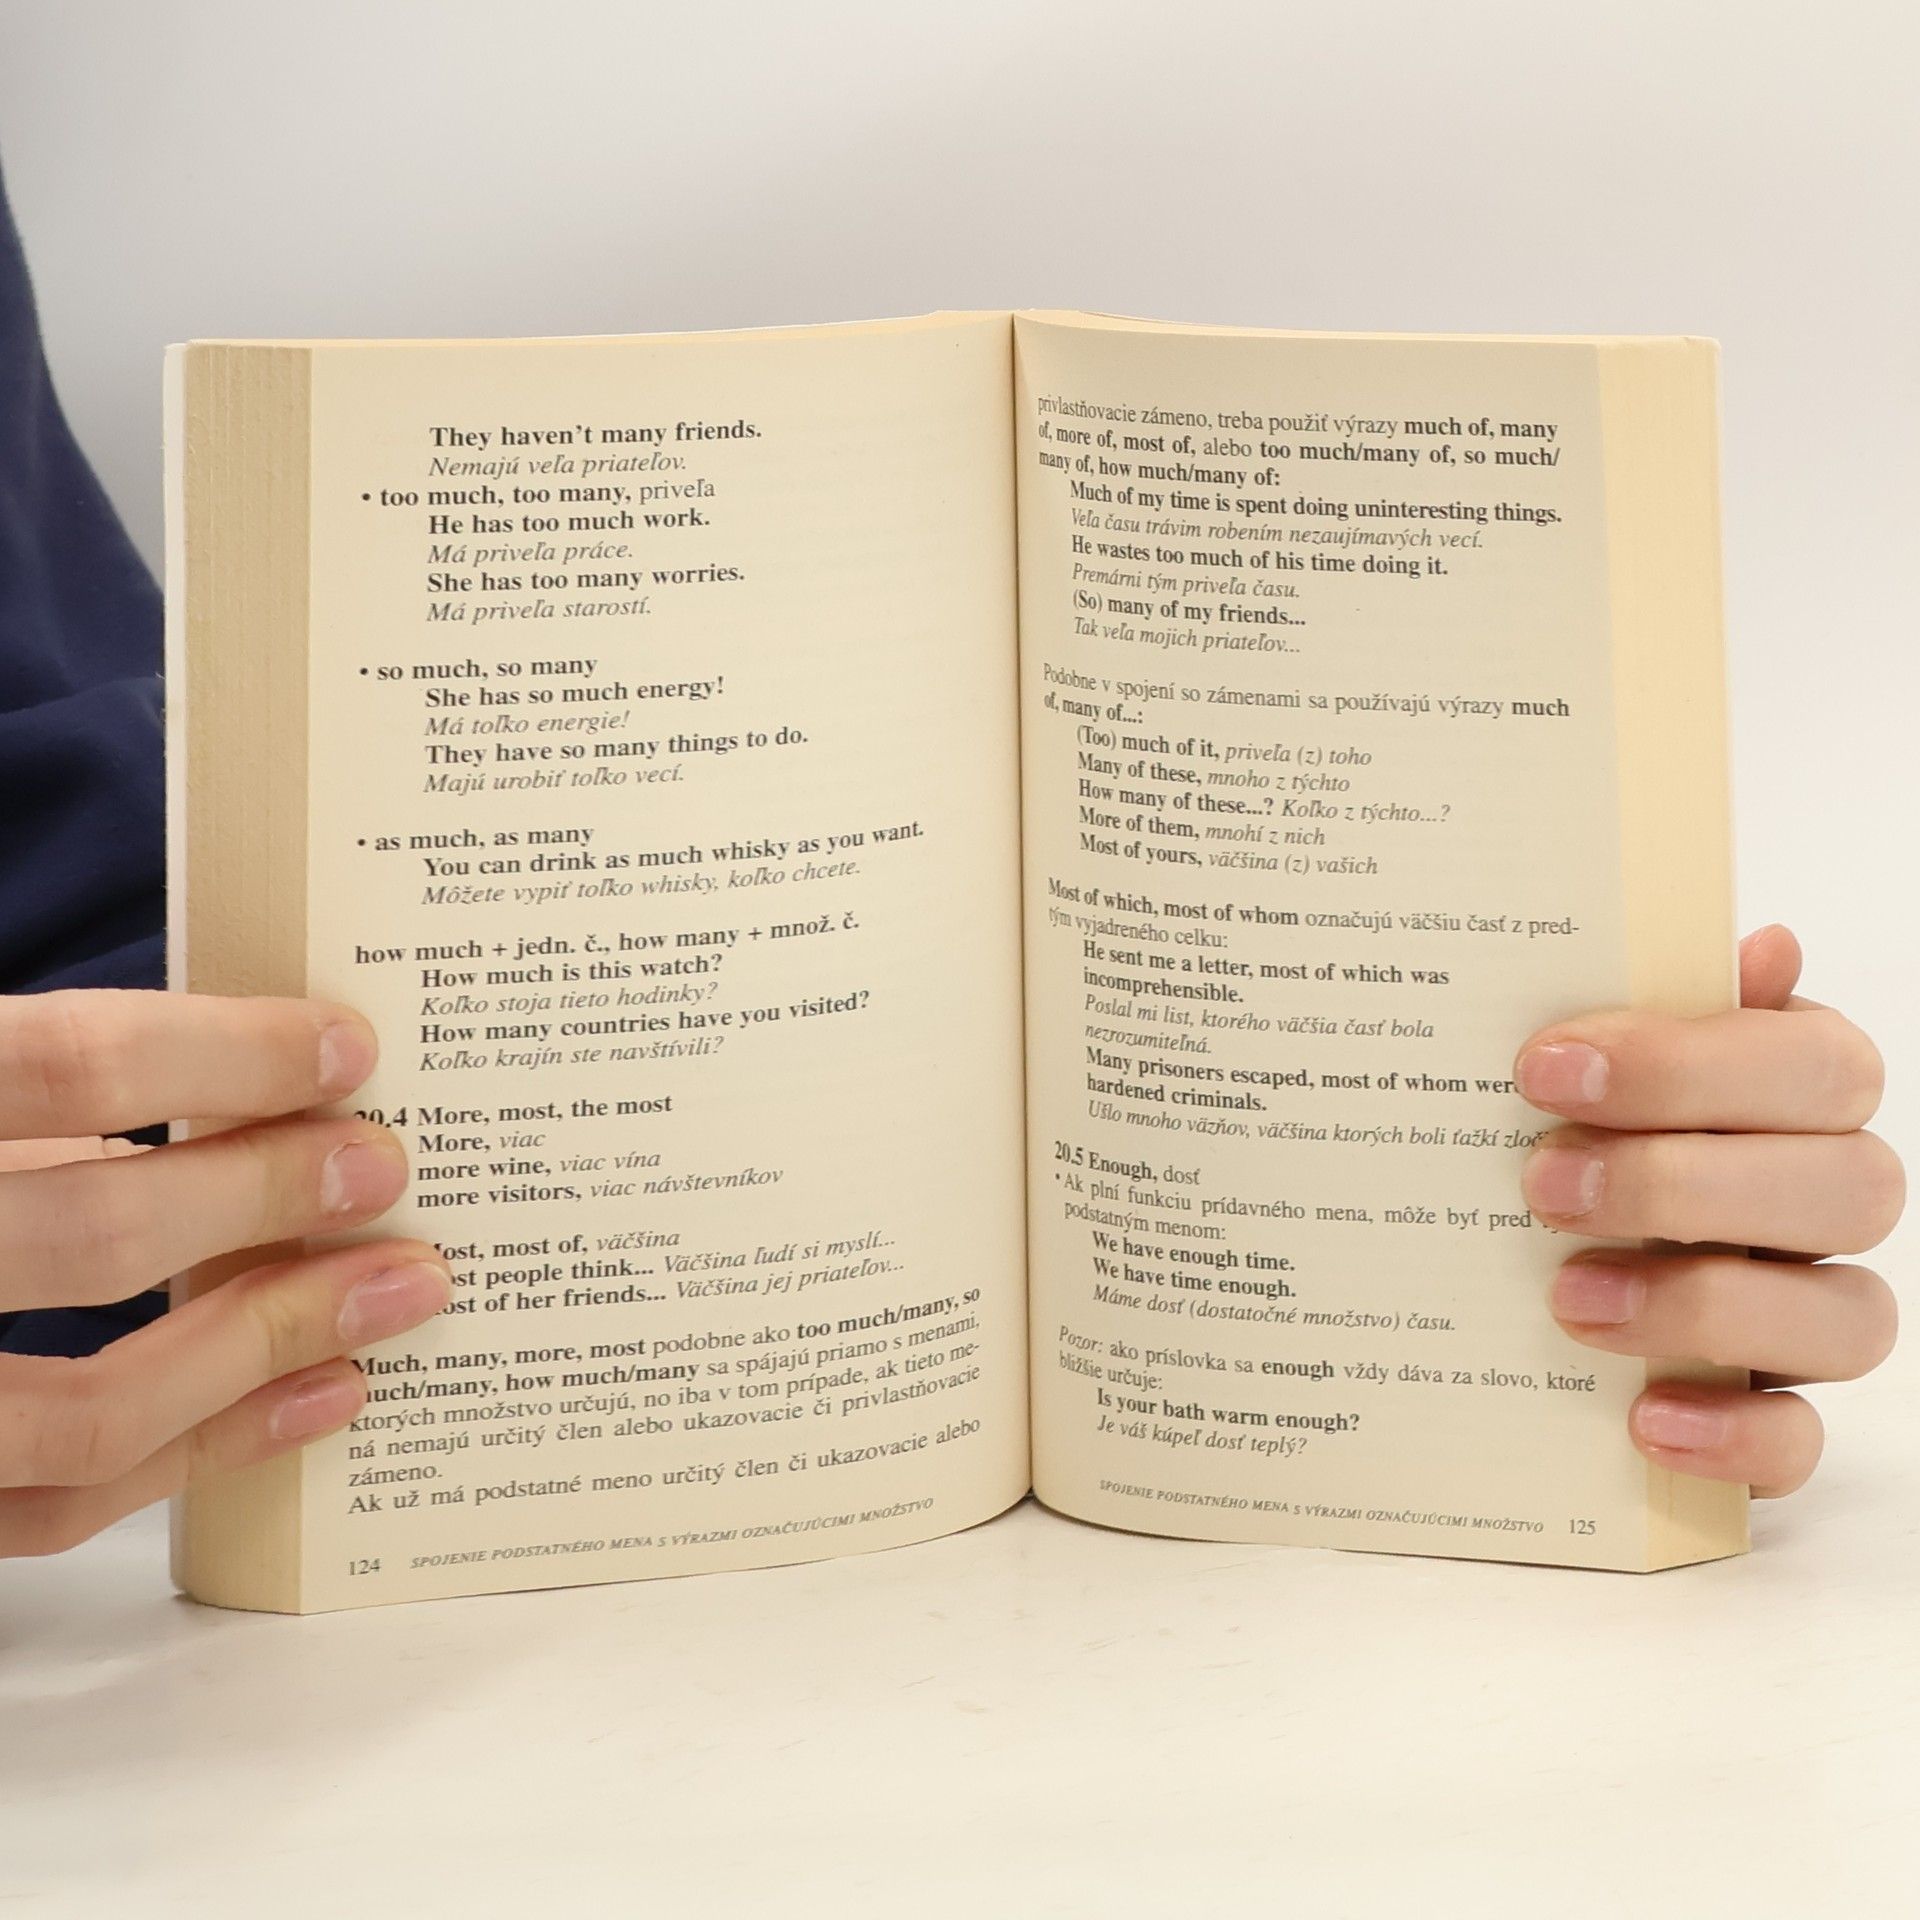 They haven't many friends.
Nemajú veľa priateľov.
• too much, too many, priveľa
He has too much work.
Má priveľa práce.
She has too many worries.
Má priveľa starostí.
• so much, so many
She has so much energy!
Má toľko energie!
They have so many things to do.
Majú urobiť toľko vecí.
• as much, as many
You can drink as much whisky as you want.
Môžete vypiť toľko whisky, koľko chcete.
how much + jedn. č., how many + množ. č.
How much is this watch?
Koľko stoja tieto hodinky?
How many countries have you visited?
Koľko krajín ste navštívili?
20.4 More, most, the most
More, viac
more wine, viac vína
more visitors, viac návštevníkov
most of, väčšina
people think... Väčšina ľudí si myslí...
of her friends... Väčšina jej priateľov...
Much, many, more, most podobne ako too much/many, so
much/many, how much/many sa spájajú priamo s menami,
ktorých množstvo určujú, no iba v tom prípade, ak tieto me-
ná nemajú určitý člen alebo ukazovacie či privlastňovacie
zámeno.
Ak už má podstatné meno určitý člen či ukazovacie alebo
124 SPOJENIE PODSTATNÉHO MENA S VÝRAZMI OZNAČUJÚCIMI MNOŽSTVO
privlastňovacie zámeno, treba použiť výrazy much of, many
of, more of, most of, alebo too much/many of, so much/
many of, how much/many of:
Much of my time is spent doing uninteresting things.
Veľa času trávim robením nezaujímavých vecí.
He wastes too much of his time doing it.
Premárni tým priveľa času.
(So) many of my friends...
Tak veľa mojich priateľov...
Podobne v spojení so zámenami sa používajú výrazy much
of, many of...:
(Too) much of it, priveľa (z) toho
Many of these, mnoho z týchto
How many of these...? Koľko z týchto...?
More of them, mnohí z nich
Most of yours, väčšina (z) vašich
Most of which, most of whom označujú väčšiu časť z pred-
tým vyjadreného celku:
He sent me a letter, most of which was
incomprehensible.
Poslal mi list, ktorého väčšia časť bola
nezrozumiteľná.
Many prisoners escaped, most of whom were
hardened criminals.
Ušlo mnoho väzňov, väčšina ktorých boli ťažkí
20.5 Enough, dosť
• Ak plní funkciu prídavného mena, môže byť pred
podstatným menom:
We have enough time.
We have time enough.
Máme dosť (dostatočné množstvo) času.
Pozor: ako príslovka sa enough vždy dáva za slovo, ktoré
bližšie určuje:
Is your bath warm enough?
Je váš kúpeľ dosť teplý?
SPOJENIE PODSTATNÉHO MENA S VÝRAZMI OZNAČUJÚCIMI MNOŽSTVO 125